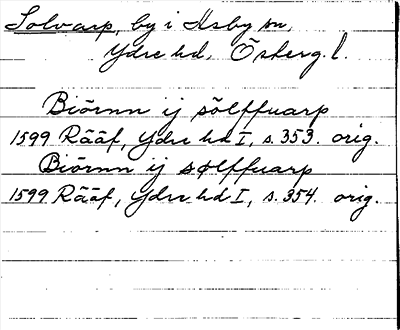 Solvarp, by i Asby sn,
Ydre hd, Österg. l.
Biörnn ij sölffuarp
1599 Rääf, Ydre hd I, s. 353. orig.
Biörnn ij sølffuarp
1599 Rääf, Ydre hd I, s. 354. orig.